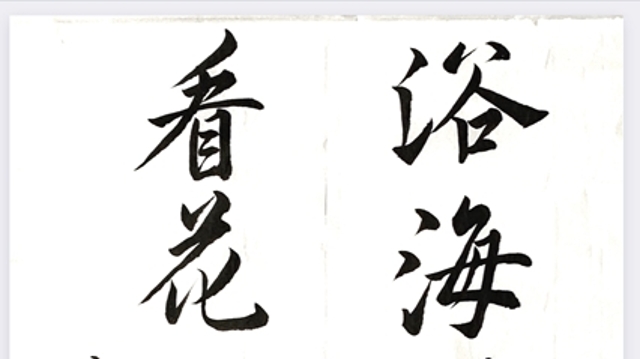 浴海
看花